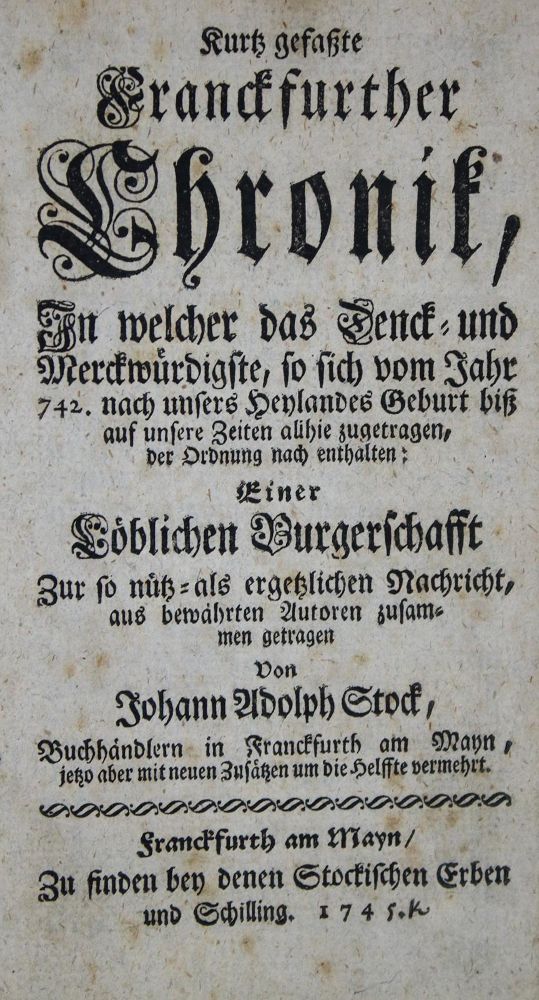 Kurtz gefaßte
Franckfurther
Chronik,
In welcher das Denck- und
Merckwürdigste, so sich vom Jahr
742. nach unsers Heylandes Geburt biß
auf unsere Zeiten allhie zugetragen,
der Ordnung nach enthalten:
Einer
Löblichen Burgerschafft
Zur so nütz- als ergetzlichen Nachricht,
aus bewährten Autoren zusam-
men getragen
Von
Johann Adolph Stock,
Buchhändlern in Franckfurth am Mayn,
jetzo aber mit neuen Zusätzen um die Helffte vermehrt.
Franckfurth am Mayn/
Zu finden bey denen Stockischen Erben
und Schilling. 1745.